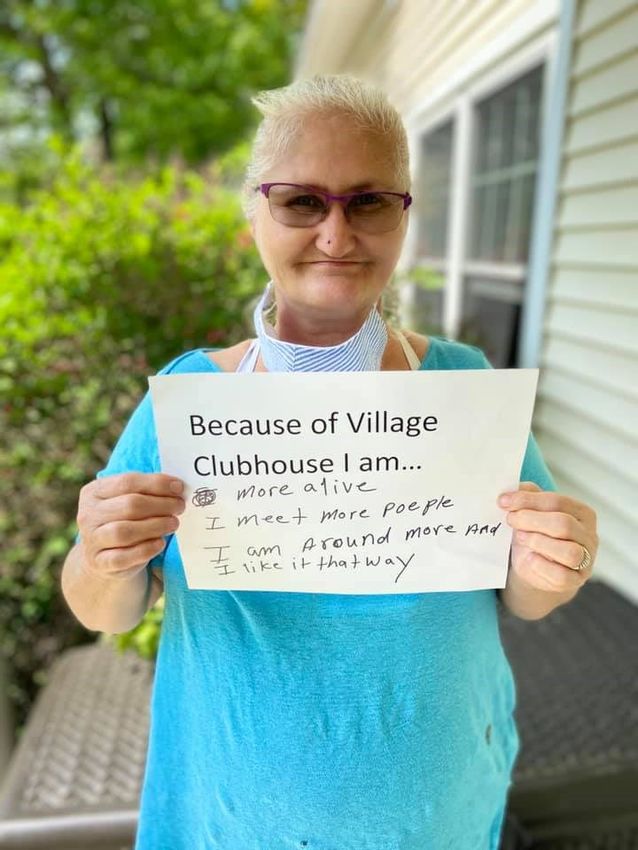 Because of Village
Clubhouse I am...
more alive
I meet more poeple
I am Around more And
I like it that way